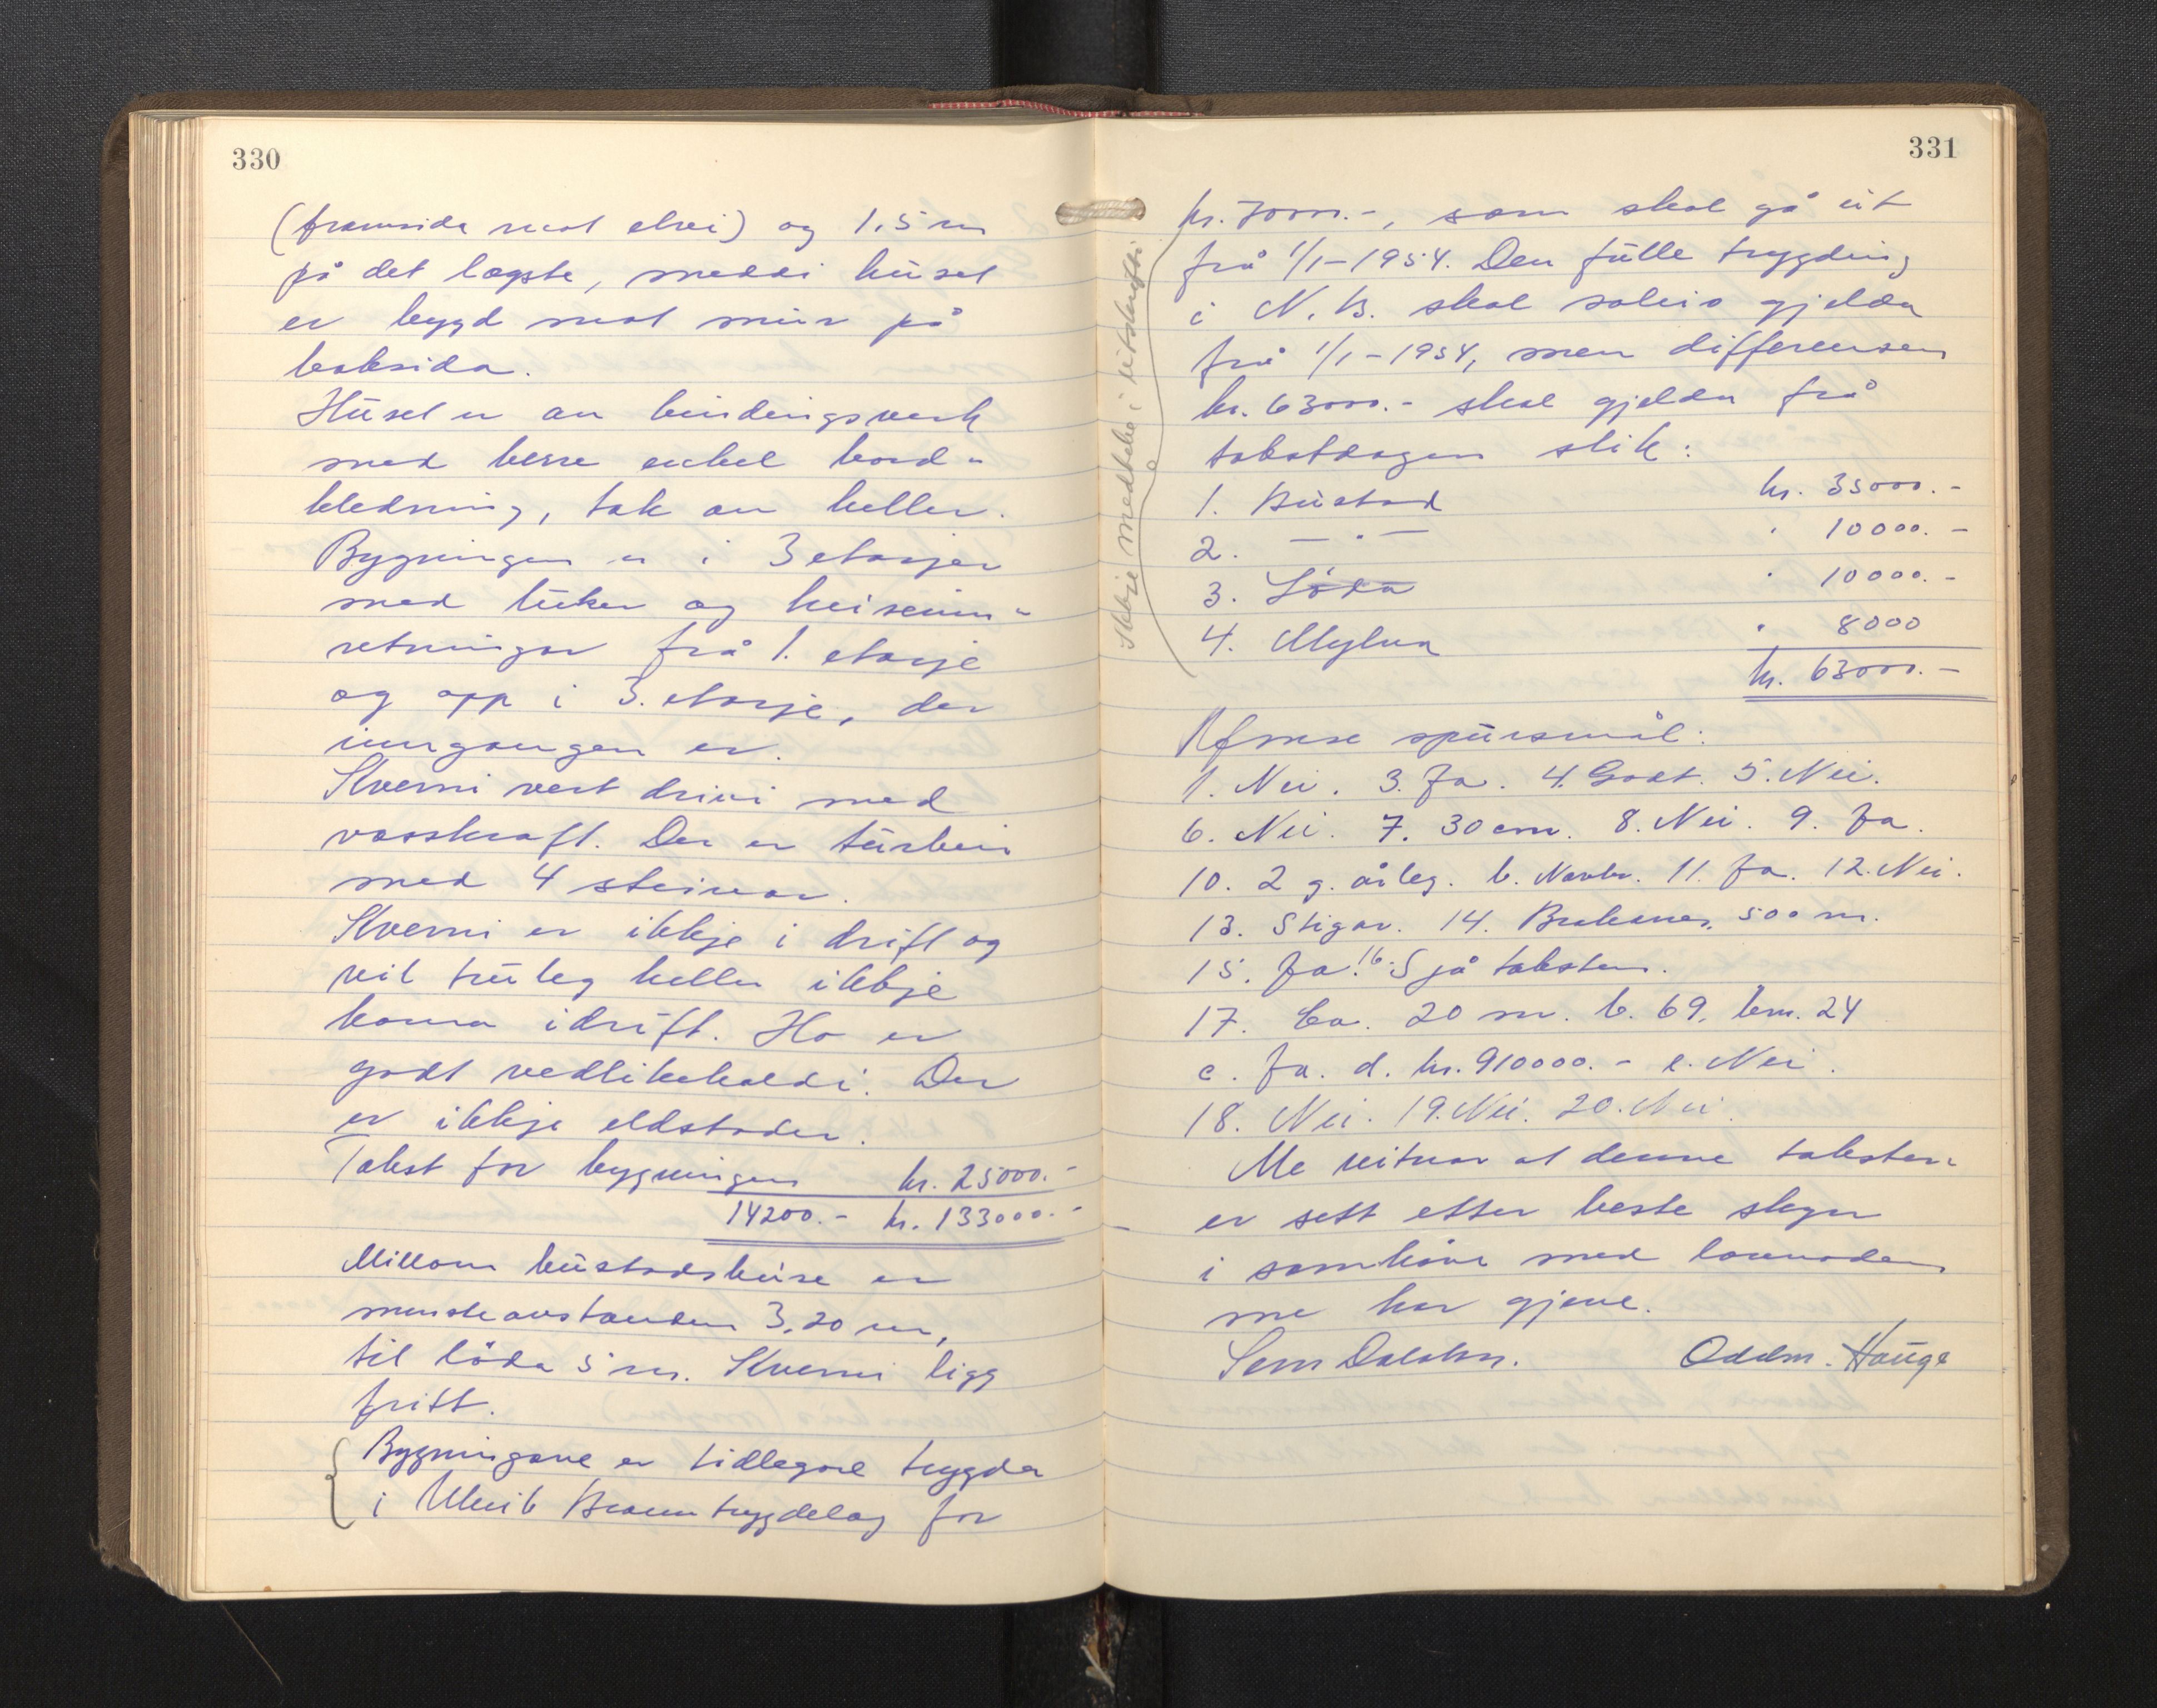 330
(framsida mot elvi) og 1,5 m
på det lægste, medan huset
er bygd mot mur på
baksida.
Huset er av bindingsverk
med berre enkel bord-
kledning, tak av heller.
Bygningen er i 3 etasjer
med luker og heiseinn-
retningar frå 1. etasje
og opp i 3. etasje, der
inngangen er.
Kverni vert drivi med
vasskraft. Der er turbin
med 4 steinar.
Kverni er ikkje i drift og
vil truleg heller ikkje
koma i drift. Ho er
godt vedlikehaldi. Der
er ikkje eldstader.
Takst for bygningen kr. 25000.-
14200.- kr. 133000.-
Millom bustadshusa er
minsteavstanden 3,20 m,
til löda 5 m. Kverni ligg
fritt.
Bygningane er tidlegare trygda
i Ulvik Branntrygdelag for
331
kr. 70000.-, som skal gå ut
frå 1/1-1954. Den fulle trygding
i N. B. skal soleis gjelda
frå 1/1-1954, men differensen
kr. 63000.- skal gjelda frå
takstdagen slik:
1. Bustad kr. 35000.-
2. -"- " 10000.-
3. Löda " 10000.-
4. Mylna " 8000
kr. 63000.-
Ikkje medteke i utskrifti
Ymse spursmål:
1. Nei. 3. Ja. 4. Godt. 5. Nei.
6. Nei. 7. 30 cm. 8. Nei. 9. Ja.
10. 2 g. årleg. b. Novbr. 11. Ja. 12. Nei.
13. Stigar. 14. Brakanes, 500 m.
15. Ja. 16. Sjå taksten.
17. Ca. 20 m. b. 69, bm. 24
c. Ja. d. kr. 910000.- e. Nei.
18. Nei. 19. Nei. 20. Nei.
Me vitnar at denne taksten
er sett etter beste skyn
i samhöve med lovnaden
me har gjeve.
Oddm. Hauge